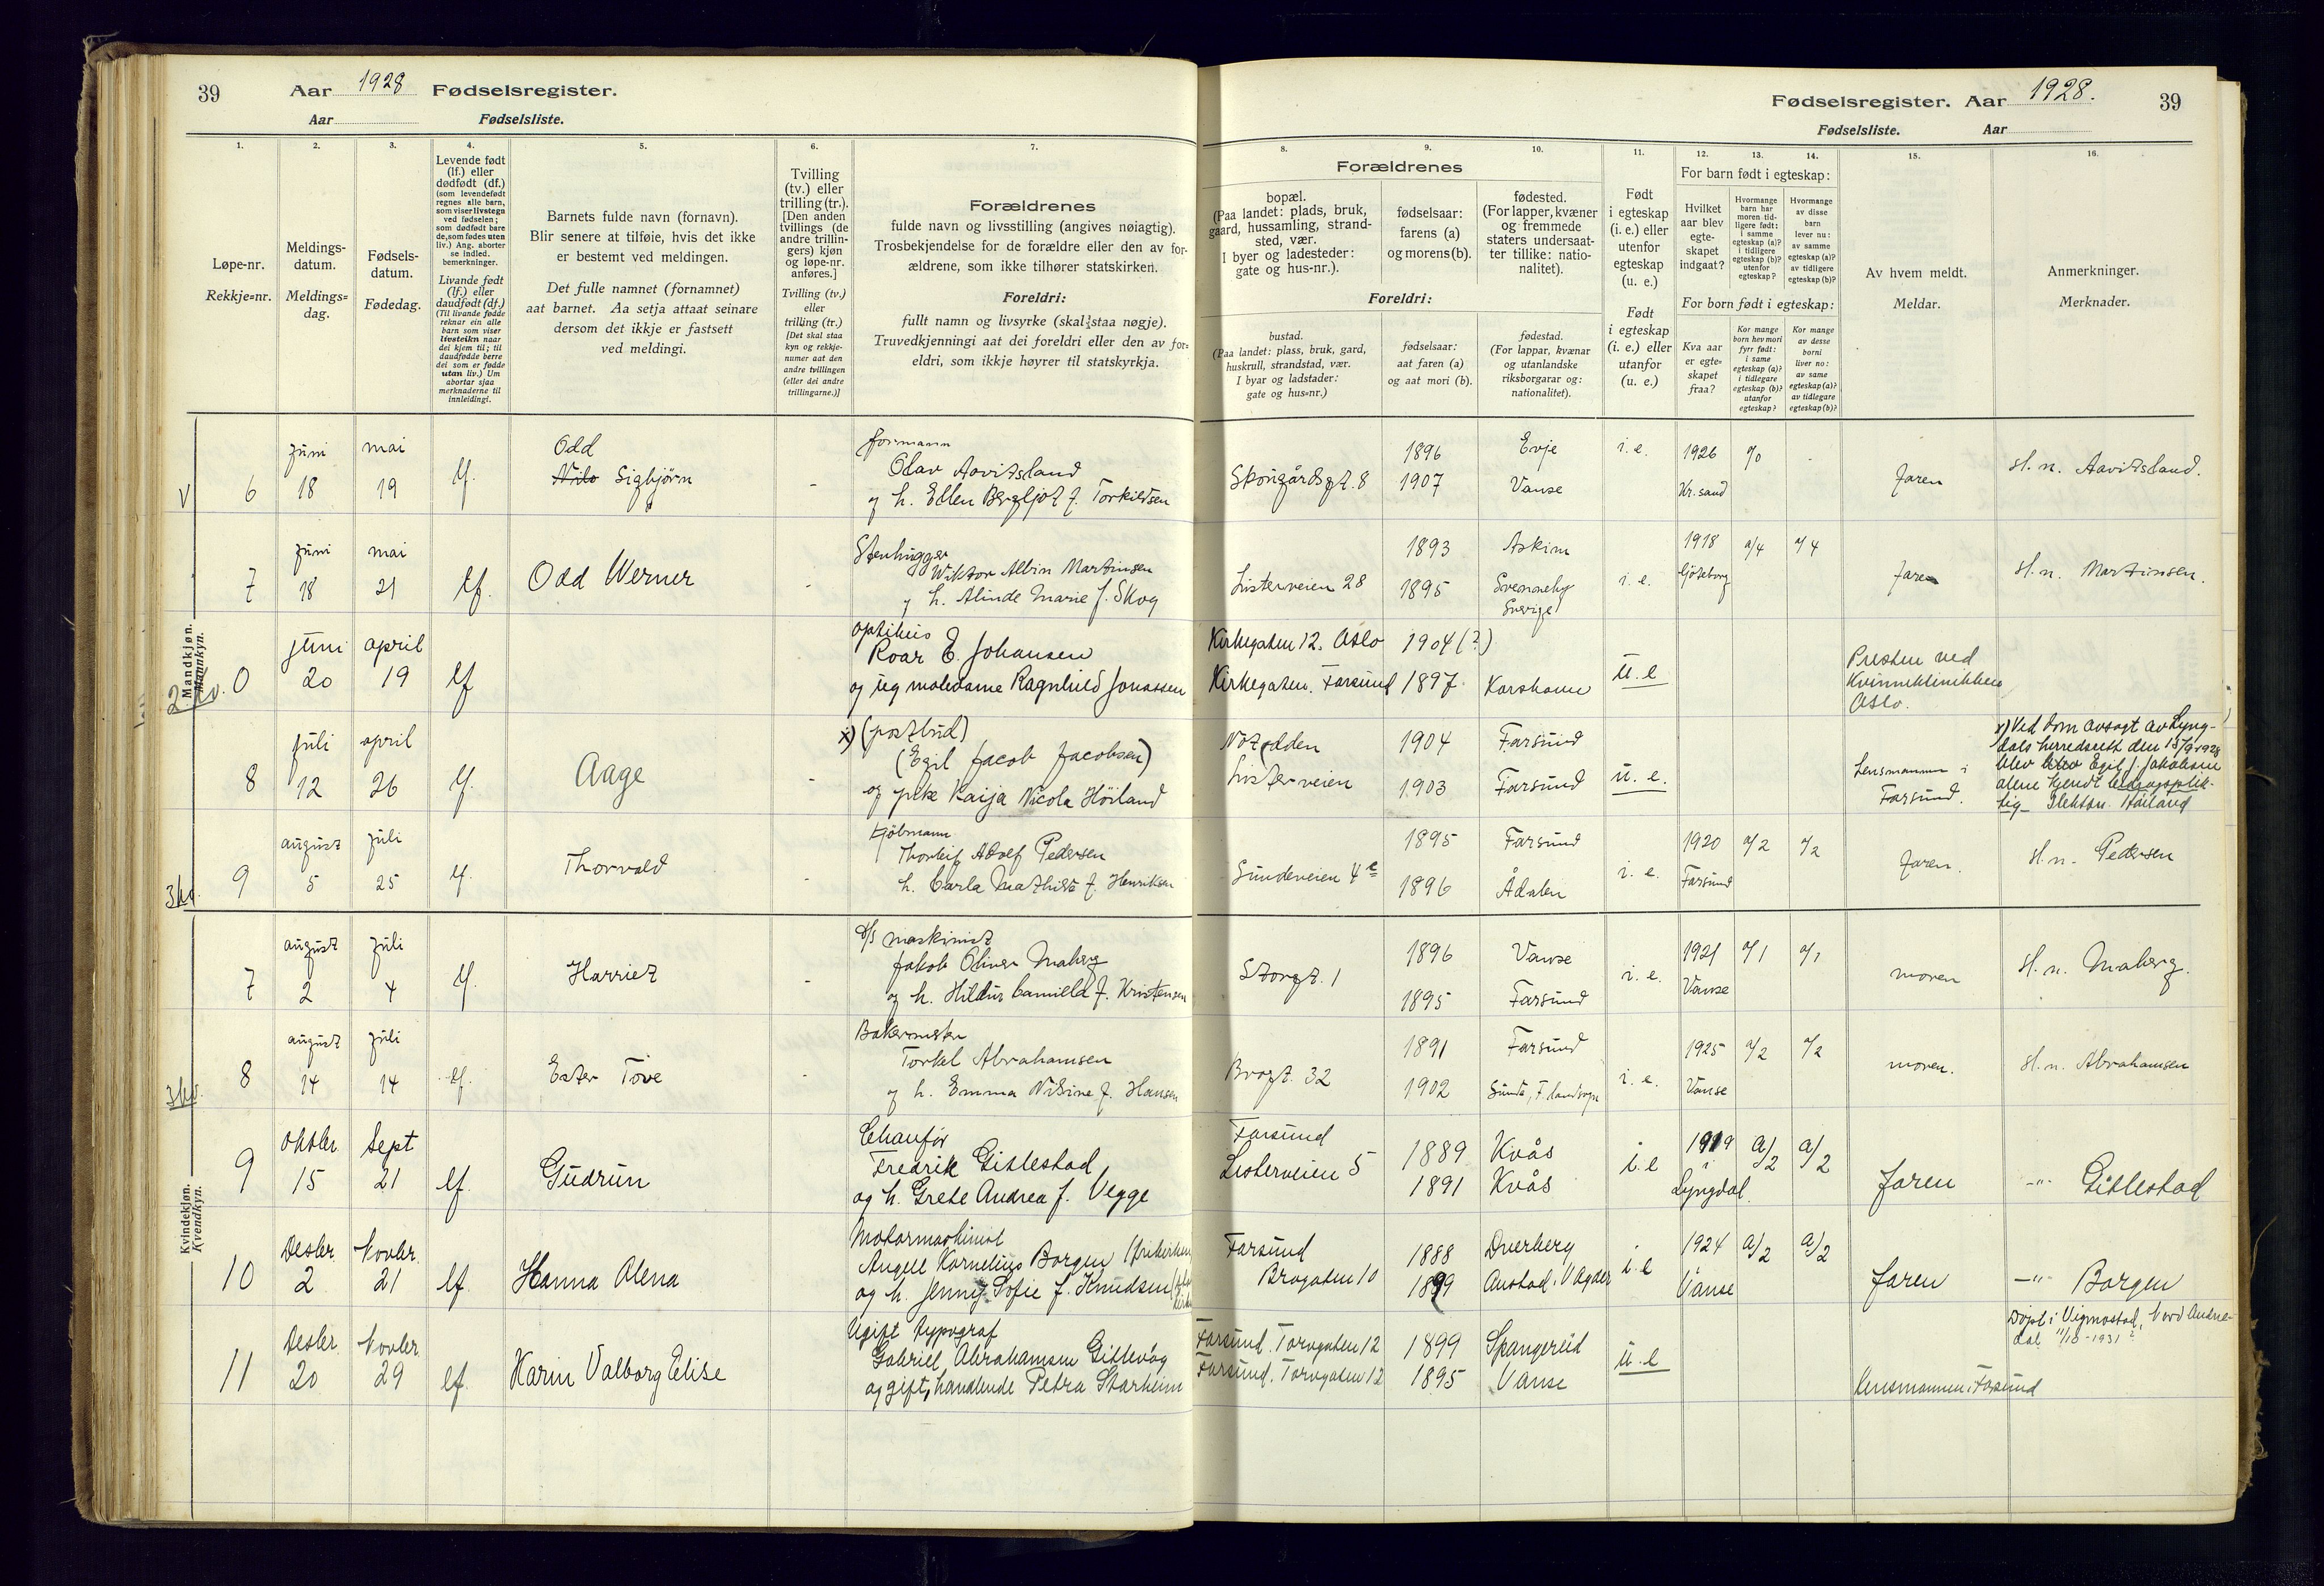 39 Aar 1928 Fødselsregister.
Aar Fødselsliste.
Fødselsregister. Aar 1928. 39
Fødselsliste. Aar
1. 2. 3. 4. 5. 6. 7.
Løpe-nr.
Rekkje=nr.
Meldings-
datum.
Meldings=
dag.
Fødsels-
datum.
Fødedag.
Levende født
(lf.) eller
dødfødt (df.)
(som levendefødt
regnes alle barn,
som viser livstegn
ved fødselen;
som dødfødt bare
de, som fødes uten
liv.) Ang. aborter
se indled.
bemerkninger.
Livande født
(lf.) eller
daudfødt (df.)
(Til livande fødde
reknar ein alle
barn som viser
livsteikn naar
dei kjem til; til
daudfødde berre
dei som er fødde
utan liv.) Um
abortar sjaa
merknaderne til
innleidingi.
Barnets fulde navn (fornavn).
Blir senere at tilføie, hvis det ikke
er bestemt ved meldingen.
Det fulle namnet (fornamnet)
aat barnet. Aa setja attaat seinare
dersom det ikkje er fastsett
ved meldingi.
Tvilling
(tv.) eller
trilling (tr.).
[Den anden
tvillings (de
andre trillin-
gers) kjøn
og løpe-nr.
anføres.]
Tvilling (tv.)
eller
trilling (tr.)
[Det skal staa
kyn og rekkje-
numer aat den
andre tvillingen
(eller dei andre
trillingarne.)]
Forældrenes
fulde navn og livsstilling (angives nøiagtig).
Trosbekjendelse for de forældre eller den av for-
ældrene, som ikke tilhører statskirken.
Foreldri:
fullt namn og livsyrke (skal staa nøgje).
Truvedkjenningi aat dei foreldri eller den av for=
eldri, som ikkje høyrer til statskyrkja.
8. 9. 10. 11. 12. 13. 14. 15. 16.
Forældrenes
bopæl.
(Paa landet: plads, bruk,
gaard, hussamling, strand-
sted, vær.
I byer og ladesteder:
gate og hus-nr.).
fødselsaar:
farens (a)
og morens (b).
fødested.
(For lapper, kvæner
og fremmede
staters undersaat-
ter tillike: natio-
nalitet).
Foreldri:
bustad.
(Paa landet: plass, bruk, gard,
huskrull, strandstad, vær.
I byar og ladstader:
gate og hus=nr.)
fødselsaar:
aat faren (a)
og aat mori (b).
fødestad.
(For lappar, kvænar
og utanlandske
riksborgarar og:
nationalitet).
Født
i egteskap
(i. e.) eller
utenfor
egteskap
(u. e.)
Født
i egteskap
(i. e.) eller
utanfor
(u. e.)
For barn født i egteskap:
Hvilket
aar blev
egte-
skapet
indgaat?
Hvormange
barn har
moren tid-
ligere født:
i samme
egteskap (a)?
i tidligere
egteskap (b)?
utenfor
egteskap?
Hvormange
av disse
barn
lever nu:
av samme
egteskap (a)?
av tidligere
egteskap (b)?
For born født i egteskap:
Kva aar
er egte-
skapet
fraa?
Kor mange
born hev mori
fyrr født:
i same
egteskap (a)?
i tidlegare
egteskap (b)?
utanfor
egteskap?
Kor mange
av desse
borni
liver no:
av same
egteskap (a)?
av tidlegare
egteskap (b)?
Av hvem meldt.
Meldar.
Anmerkninger.
Merknader.
Mandkjøn.
Mannkyn.
juni mai Odd formann 1896 Evje i. e. 1926 a/0
V 6 18 19 lf. Nils Sigbjörn - Olav Aavitsland
og h. Ellen Bergljot f. Torkildsen Skongårdsgt. 8 1907 Vanse Kr.sand faren sl. n. Aavitsland.
juni mai Stenhugger 1893 Askim 1918 a/4 a/4
7 18 21 lf. Odd Werner - Wiktor Albin Martinsen
og h. Alinde Marie f. Skog Listerveien 28 1895 Svenneby Sverige i. e. Göteborg faren sl. n. Martinsen.
juni april optikus
Roar E. Johansen Kirkegaten 12. Oslo 1904 (?)
0 20 19 lf og ugm Ragnhild Jonassen Kirkegaten. Farsund 1897. Korshavn u. e Presten ved
Kvinneklinikken
Oslo.
juli april x) (postbud)
(Egil Jacob Jacobsen) Notodden 1904 Farsund
8 12 26 lf. Aage - og pike Kaija Nicola Höiland Listerveien 1903 Farsund u. e. Lensmannen i
Farsund.
x) Ved dom avsagt av Lyng-
dals herredsrett den 15/9 1928
blev Egil J. Jakobsen
alene kjendt bidragsplik-
tig Höiland
august juli Kjöbmann
Thorleif Adolf Pedersen 1895 Farsund 1920 a/2 a/2
3kv. 9 5 25 lf. Thorvald - h. Carla Mathilde f. Henriksen Sundeveien 4 1896 Ådalen i. e. Farsund faren. sl. n. Pedersen
Kvindekjøn.
Kvendkyn.
august juli d/s maskinist
Jakob Oliver Maberg 1896 Vanse 1921 a/1 a/1
7 2 4 lf. Harriet - og h. Hildur Camilla f. Kristensen Storgt. 1 1895 Farsund i. e. Vanse moren sl. n. Maberg.
august juli Bakermester
Torkel Abrahamsen 1891 Farsund 1925 a/2 a/2
3kv. 8 14 14 lf. Ester Tove - og h. Emma Nisine f. Hansen Brogt. 32 1902 Sunde, F. landsogn i. e. Vanse moren. sl. n. Abrahamsen
oktbr. Sept Chauför
Fredrik Gitlestad Farsund 1889 Kvås 1919 a/2 a/2
9 15 21 lf. Gudrun og h. Grete Andrea f. Vegge Listerveien 5 1891 Kvås i. e Lyngdal. faren -"- Gitlestad
Desbr. Novbr. Motormaskinist
Angell Kornelius Borgen (frikirken) Farsund 1888 Dverberg 1924 a/2 a/2
10 2 21 lf. Hanna Alena og h. Jenny Sofie f. Knudsen Brogaten 10 1899 Austad, V Agder i. e Vanse faren -"- Borgen
Desbr. Novbr. Ugift typograf
Gabriel Abrahamsen Gitlevåg Farsund. Torvgaten 12 1899 Spangereid
11 20 29 lf. Karin Valborg Elise og gift, handlende Petra Starheim Farsund. Torvgaten 12 1895 Vanse u. e Lensmannen i Farsund
Döpt i Vigmostad, Nord Audne-
dal 1931